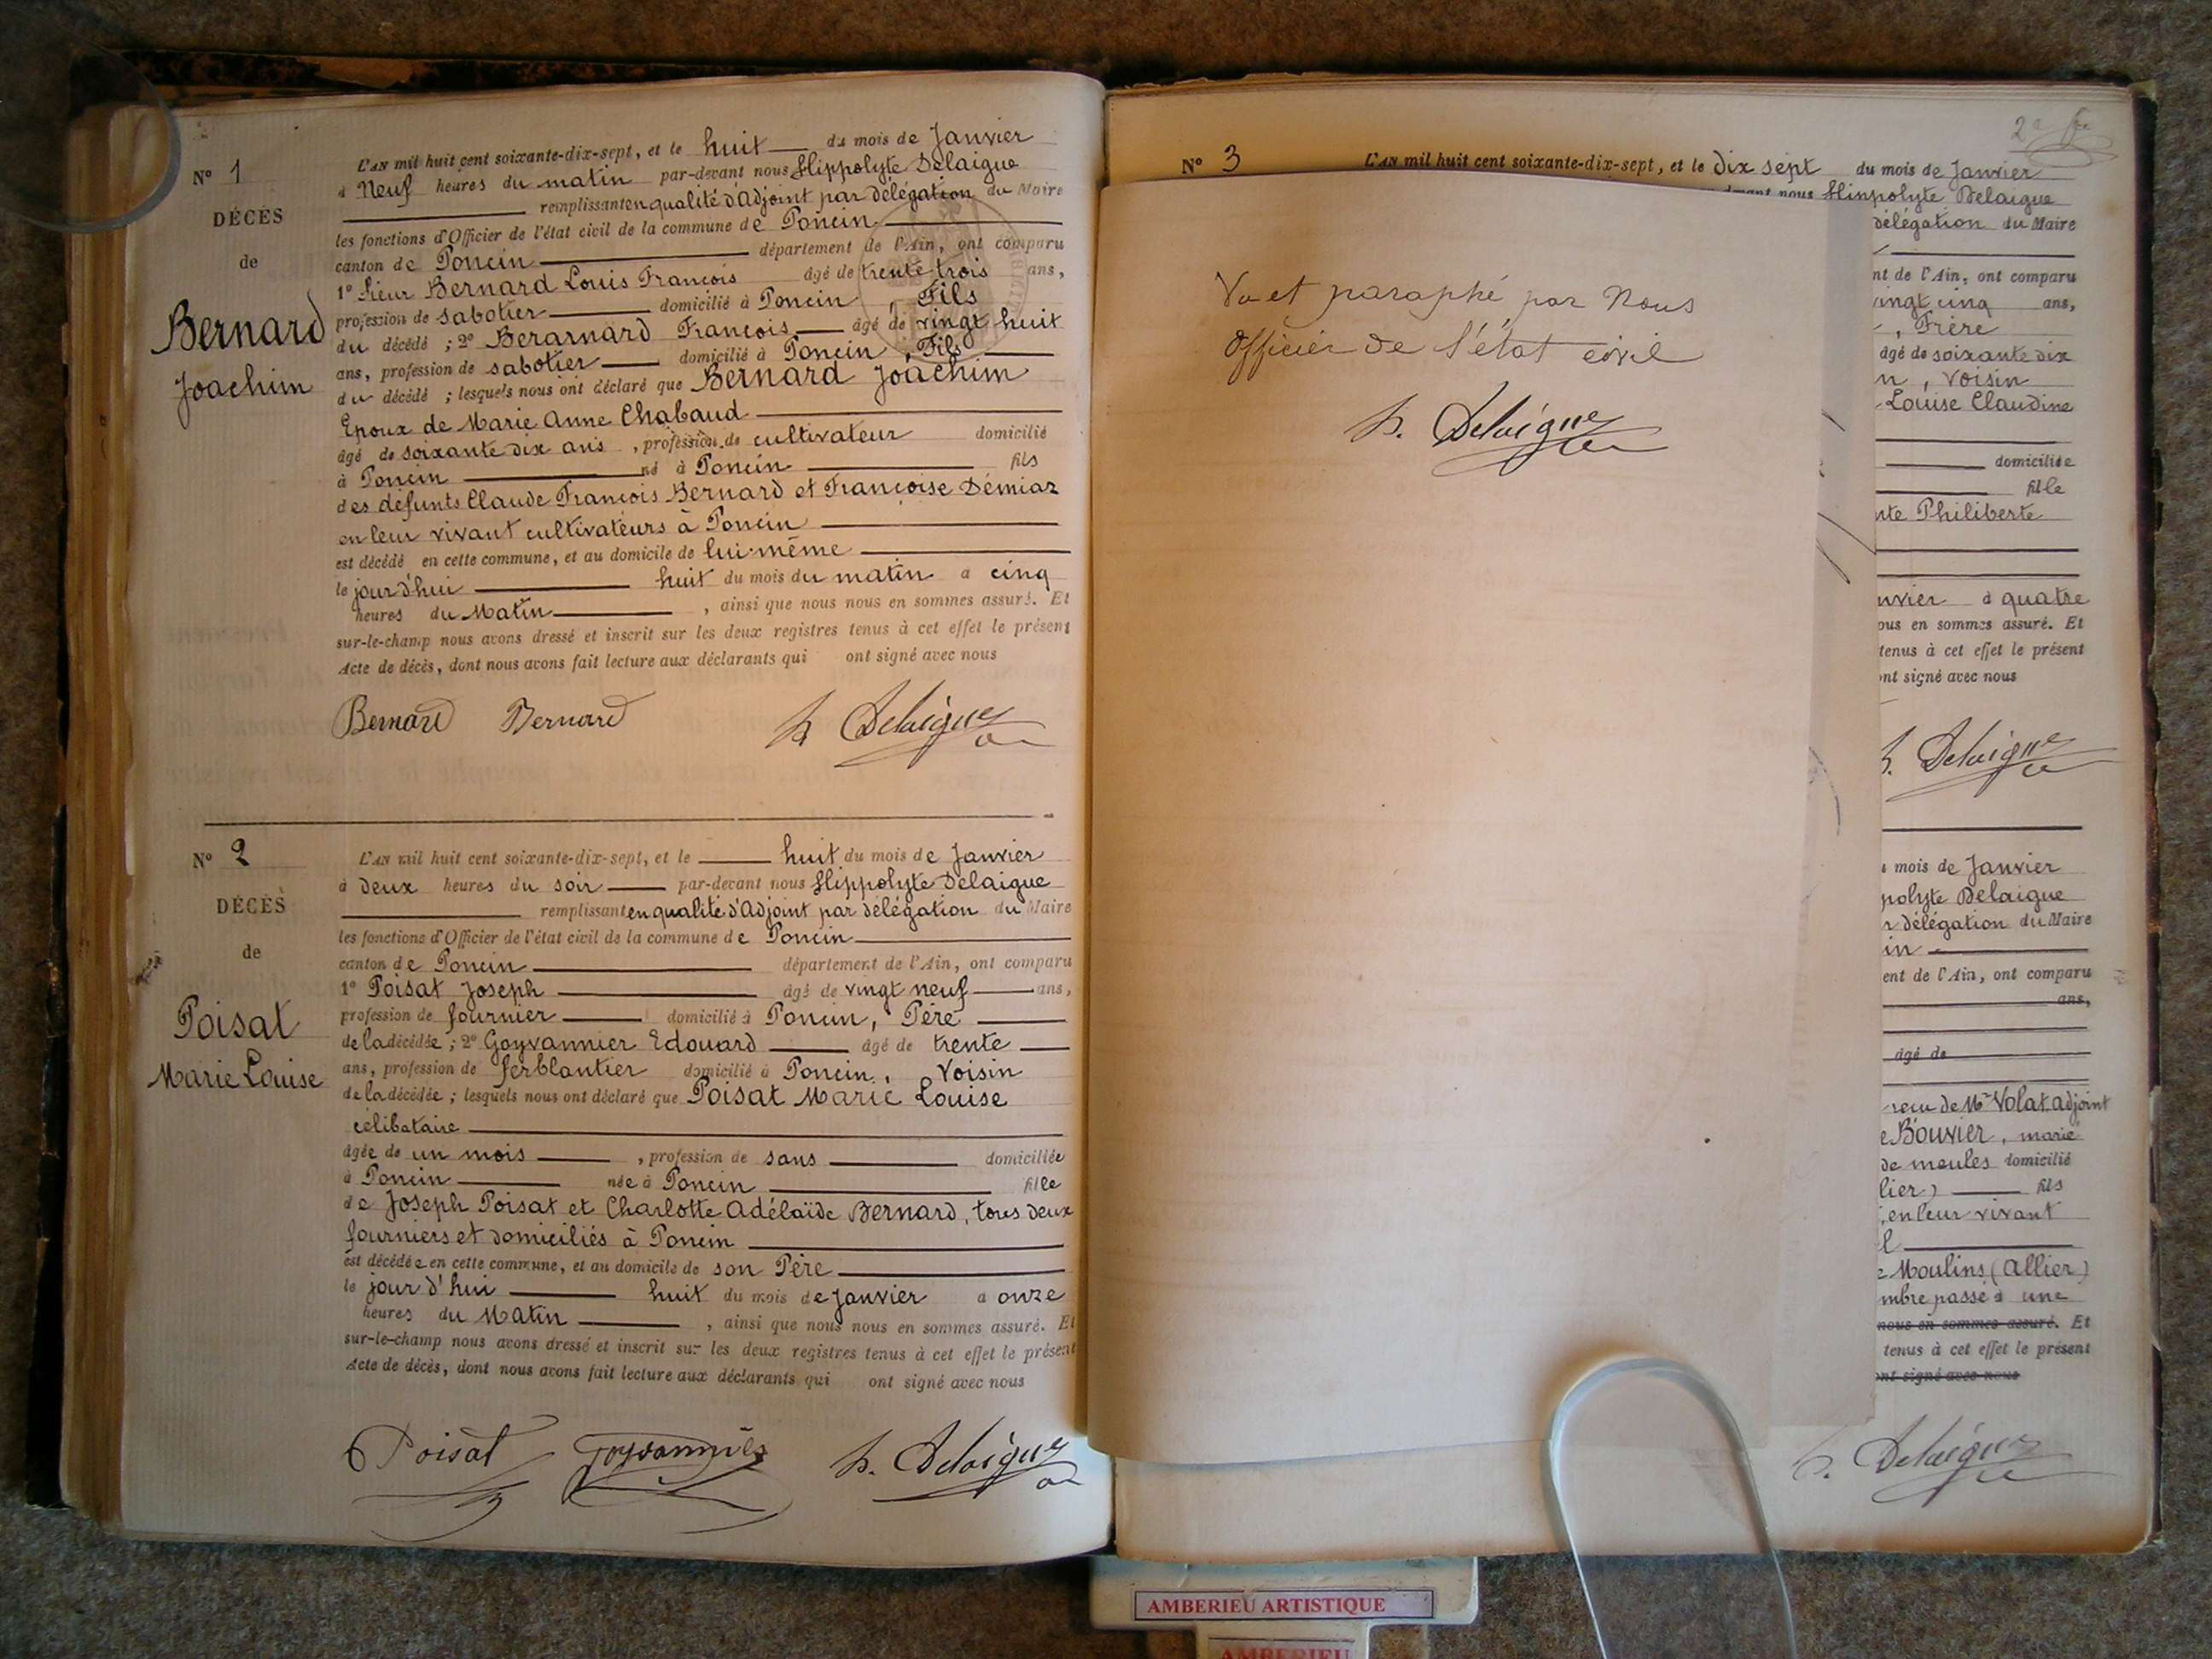 N° 1
DÉCÈS
de
Bernard
Joachim
L'AN mil huit cent soixante-dix-sept, et le huit du mois de Janvier
à Neuf heures du matin par-devant nous Hippolyte Delaigue
remplissant en qualité d'Adjoint par délégation du Maire
les fonctions d'Officier de l'état civil de la commune de Poncin
canton de Poncin département de l'Ain, ont comparu
1° Sieur Bernard Louis François âgé de trente trois ans,
profession de sabotier domicilié à Poncin, Fils
du décédé ; 2° Berarnard François âgé de vingt huit
ans, profession de sabotier domicilié à Poncin, Fils
du décédé ; lesquels nous ont déclaré que Bernard Joachim
Epoux de Marie Anne Chabaud
âgé de soixante dix ans, profession de cultivateur domicilié
à Poncin né à Poncin fils
des défunts Claude François Bernard et Françoise Démiaz
en leur vivant cultivateurs à Poncin
est décédé en cette commune, et au domicile de lui-même
le jourd'hui huit du mois du matin a cinq
heures du Matin, ainsi que nous nous en sommes assuré. Et
sur-le-champ nous avons dressé et inscrit sur les deux registres tenus à cet effet le présent
Acte de décès, dont nous avons fait lecture aux déclarants qui ont signé avec nous
Bernard Bernard h Delaigue
N° 2
DÉCÈS
de
Poisat
Marie Louise
L'AN mil huit cent soixante-dix-sept, et le huit du mois de Janvier
à deux heures du soir par-devant nous Hippolyte Delaigue
remplissant en qualité d'Adjoint par délégation du Maire
les fonctions d'Officier de l'état civil de la commune de Poncin
canton de Poncin département de l'Ain, ont comparu
1° Poisat Joseph âgé de vingt neuf ans,
profession de fournier domicilié à Poncin, Père
de la décédée ; 2° Goyvannier Edouard âgé de trente
ans, profession de ferblantier domicilié à Poncin, Voisin
de la décédée ; lesquels nous ont déclaré que Poisat Marie Louise
célibataire
âgée de un mois, profession de sans domiciliée
à Poncin née à Poncin fille
de Joseph Poisat et Charlotte Adélaïde Bernard, tous deux
fourniers et domiciliés à Poncin
est décédée en cette commune, et au domicile de son Père
le jour d'hui huit du mois de Janvier a onze
heures du Matin, ainsi que nous nous en sommes assuré. Et
sur-le-champ nous avons dressé et inscrit sur les deux registres tenus à cet effet le présent
Acte de décès, dont nous avons fait lecture aux déclarants qui ont signé avec nous
Poisat Goyvannier h. Delaigue
N° 3
L'AN mil huit cent soixante-dix-sept, et le dix sept du mois de Janvier
nous Hippolyte Delaigue
délégation du Maire
nt de l'Ain, ont comparu
vingt cinq ans,
, Frère
âgé de soixante dix
n, voisin
Louise Claudine
domiciliée
fille
nte Philiberte
nvier à quatre
ous en sommes assuré. Et
tenus à cet effet le présent
ont signé avec nous
h. Delaigue
Vu et paraphé par Nous
Officier de l'état civil
h. Delaigue
mois de Janvier
polyte Delaigue
r délégation du Maire
in
ent de l'Ain, ont comparu
ans,
âgé de
reçu de Mr Volat adjoint
e Bouvier, marié
de meules domicilié
lier) fils
, en leur vivant
l
e Moulins (Allier)
mbre passé à une
nous en sommes assuré. Et
tenus à cet effet le présent
ont signé avec nous
h. Delaigue
AMBERIEU ARTISTIQUE
AMBERIEU